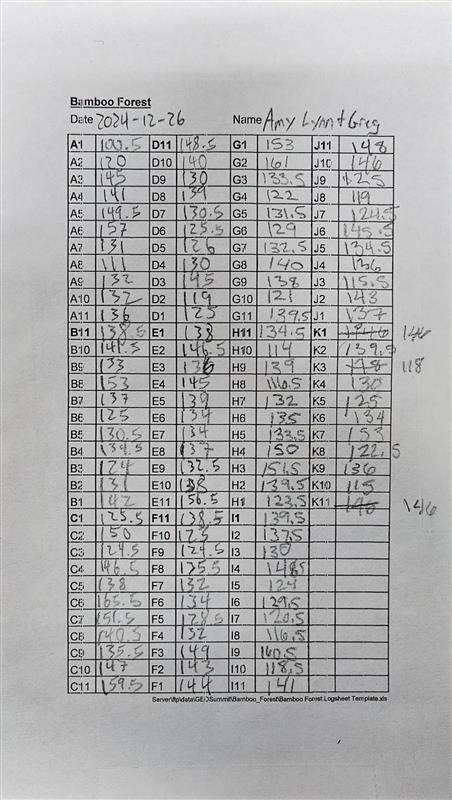 Bamboo Forest
Date 2024-12-26 Name Amy Lynn + Greg
A1 100.5 D11 148.5 G1 153 J11 148
A2 120 D10 140 G2 161 J10 146
A3 145 D9 130 G3 133.5 J9 125
A4 141 D8 139 G4 122 J8 119
A5 149.5 D7 130.5 G5 131.5 J7 124.5
A6 157 D6 125.5 G6 129 J6 145.5
A7 131 D5 126 G7 132.5 J5 134.5
A8 111 D4 130 G8 140 J4 136
A9 132 D3 145 G9 138 J3 115.5
A10 132 D2 119 G10 121 J2 143
A11 136 D1 125 G11 139.5 J1 137
B11 138.5 E1 138 H11 134.5 K1 146
B10 141.5 E2 146.5 H10 114 K2 139.5
B9 133 E3 136 H9 139 K3 118
B8 153 E4 145 H8 116.5 K4 130
B7 137 E5 139 H7 132 K5 125
B6 125 E6 134 H6 135 K6 134
B5 130.5 E7 134 H5 133.5 K7 153
B4 139.5 E8 137 H4 150 K8 122.5
B3 124 E9 132.5 H3 151.5 K9 136
B2 131 E10 138 H2 139.5 K10 115
B1 142 E11 156.5 H1 123.5 K11 146
C1 125.5 F11 138.5 I1 139.5
C2 150 F10 125 I2 137.5
C3 124.5 F9 124.5 I3 130
C4 146.5 F8 135.5 I4 148.5
C5 138 F7 132 I5 124
C6 165.5 F6 134 I6 129.5
C7 151.5 F5 128.5 I7 120.5
C8 140.5 F4 132 I8 116.5
C9 135.5 F3 149 I9 160.5
C10 147 F2 143 I10 118.5
C11 159.5 F1 144 I11 141
Server\ftp\data\GEOSummit\Bamboo_Forest\Bamboo Forest Logsheet Template.xls